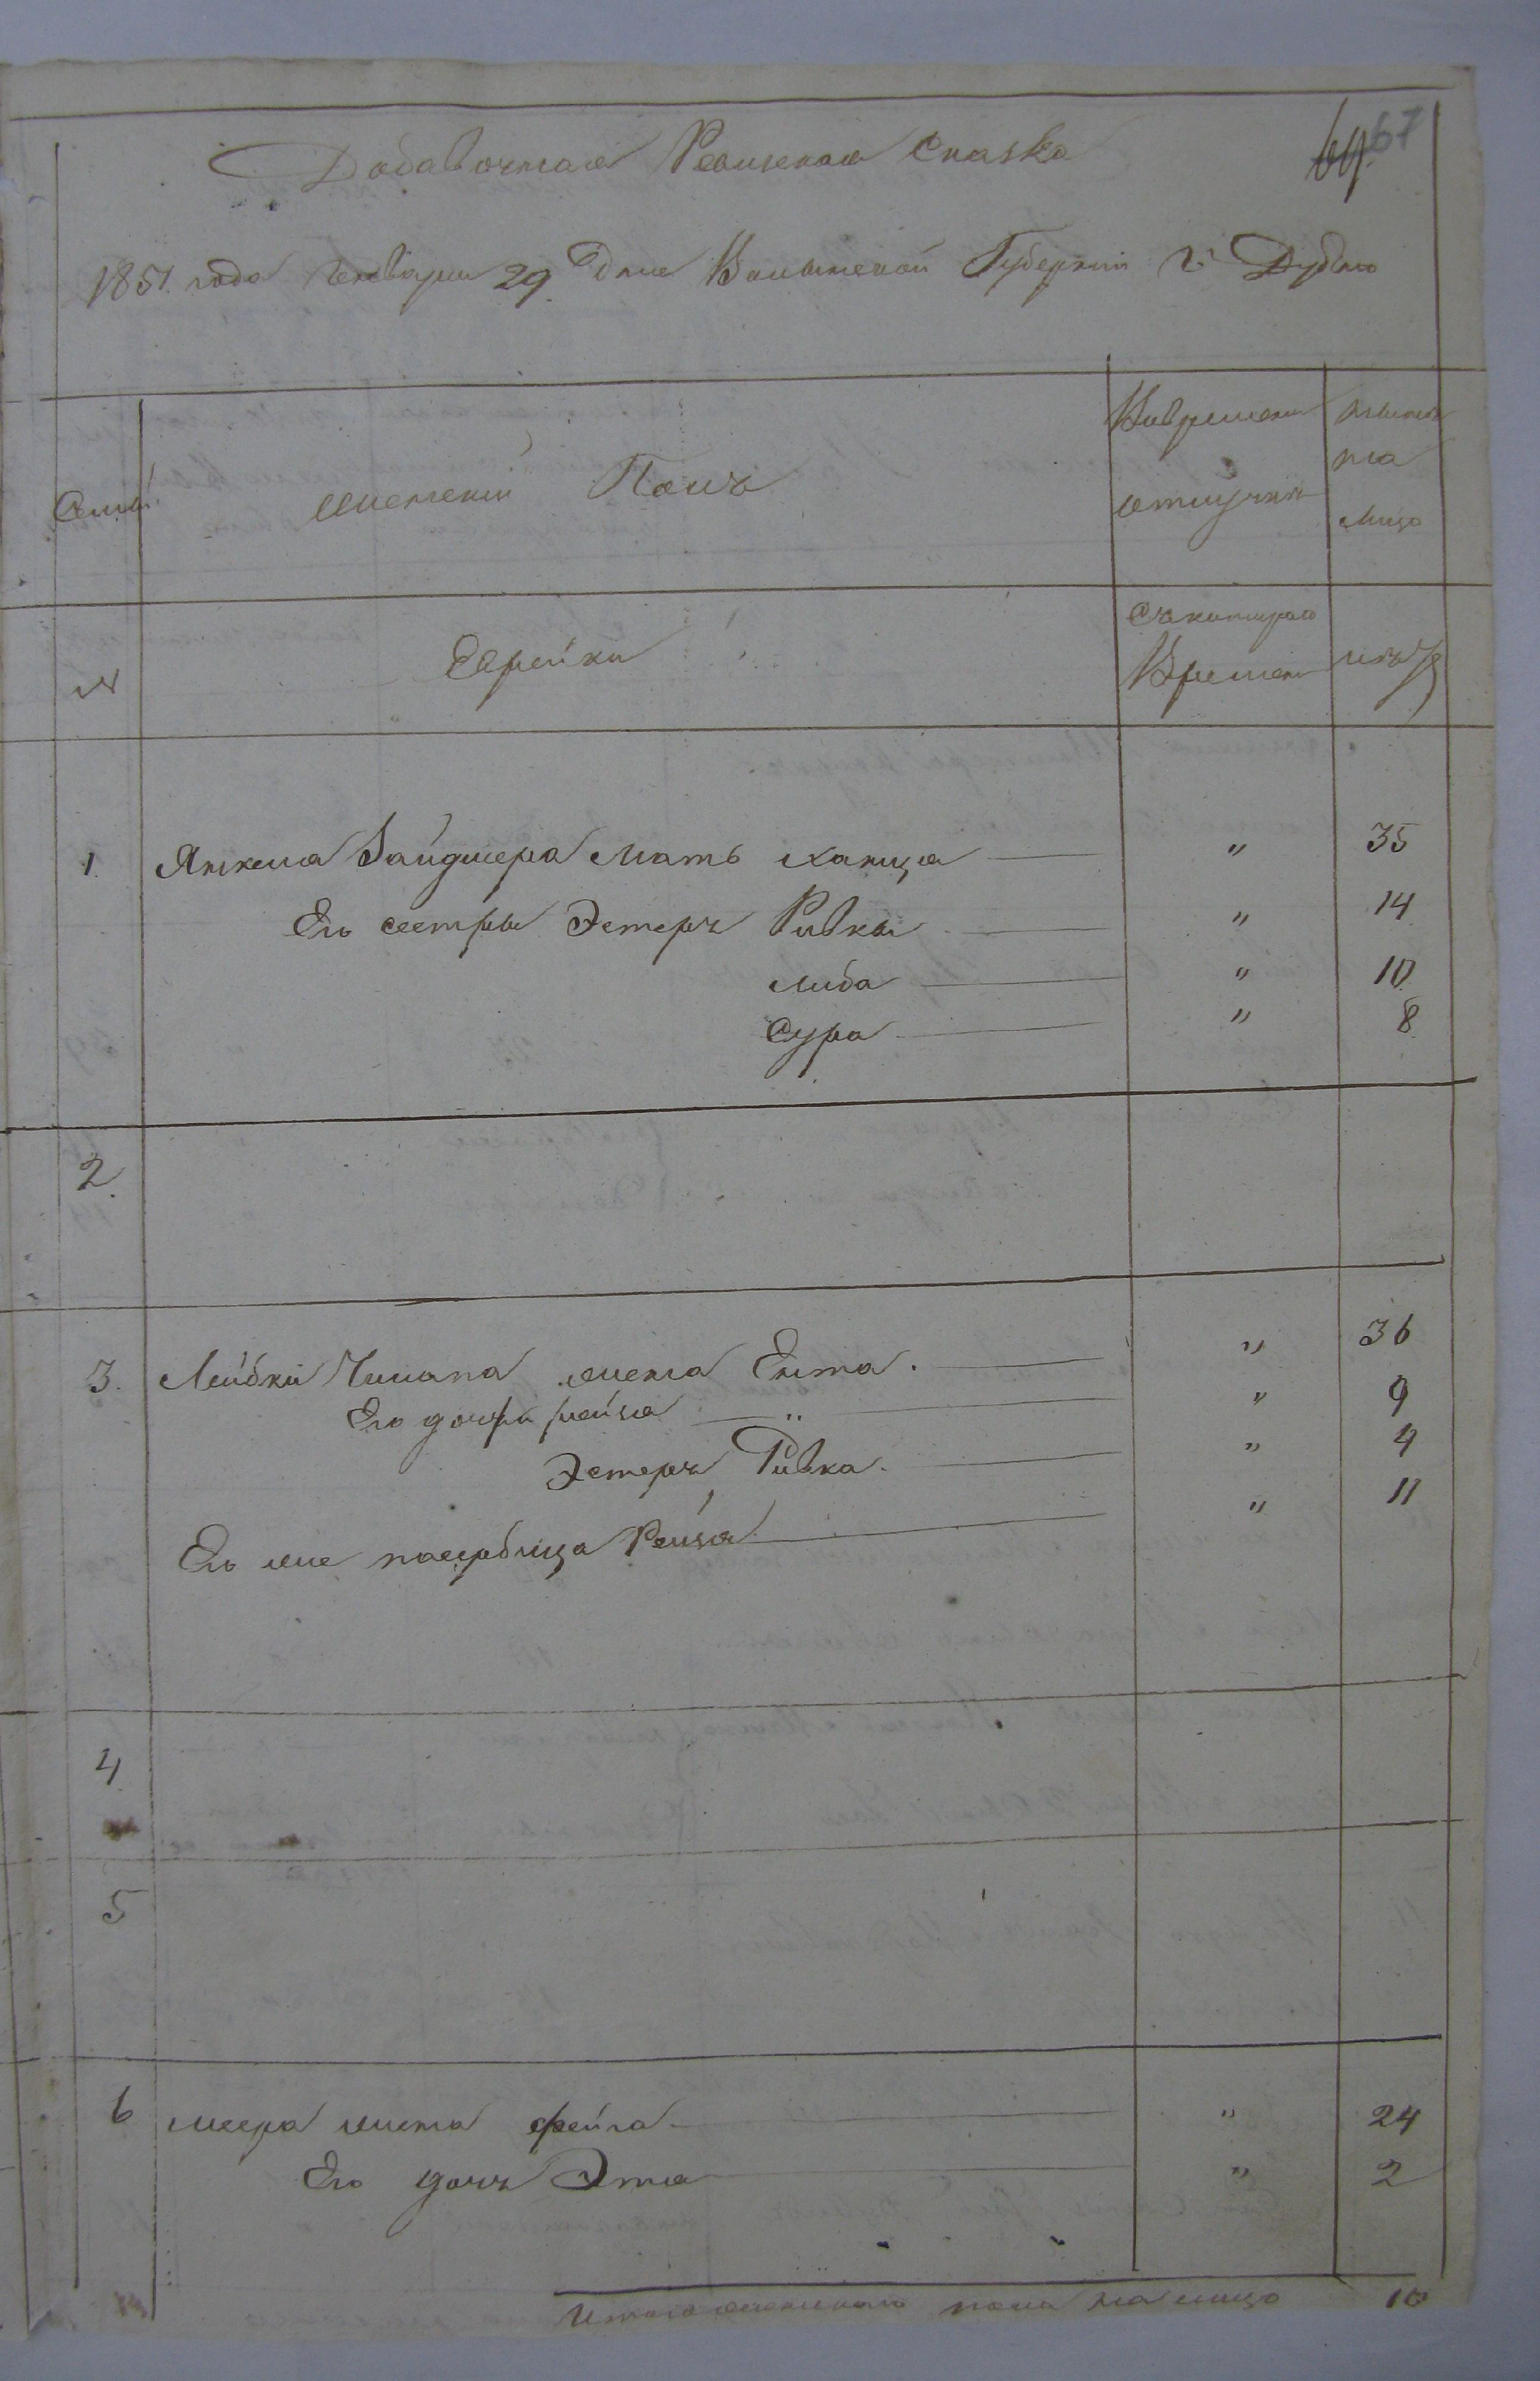 Додавочная Ревизская Сказка
67
1851 года Генваря 29 Дня Волынской Губернии Г. Дубно
Семьи
женский Полъ
Вовремени
отлучки
ныне
на
лицо
№
Еврейки
Съкотораго
Времени
лѣта
1. Янкеля Зайдшера Мать Ханця " 35
Его сестры Эстеръ Ривка " 14
Либа " 10
Сура " 8
2.
3. Лейбки жена Ента. " 36
Его дочри Рейзя " " 9
Эстеръ Ривка. " 4
Его же Рейзя " 11
4
5
6 Меера жена фейга " 24
Его дочъ Этя " 2
Итого женскаго пола на лицо 10